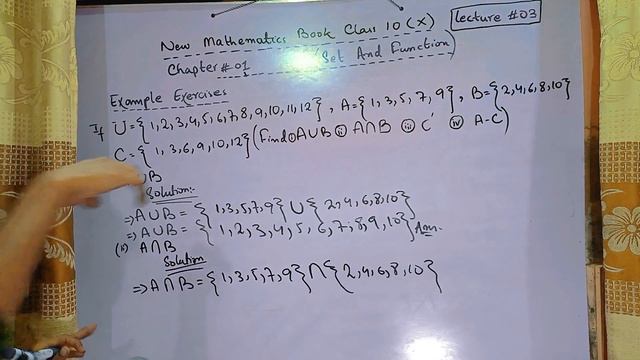 lecture #03
New Mathematics Book Class 10 (X)
Chapter #01 (Set And Function)
Example Exercises
If U={1,2,3,4,5,6,7,8,9,10,11,12}, A={1,3,5,7,9}, B={2,4,6,8,10}
C={1,3,6,9,10,12} (Find ⓘ A∪B ⓘⓘ A∩B ⓘⓘⓘ C' ⓘⓥ A-C)
∪B
Solution:-
⇒A∪B={1,3,5,7,9}∪{2,4,6,8,10}
⇒A∪B={1,2,3,4,5,6,7,8,9,10} Ans.
(ii) A∩B
Solution
⇒A∩B={1,3,5,7,9}∩{2,4,6,8,10}